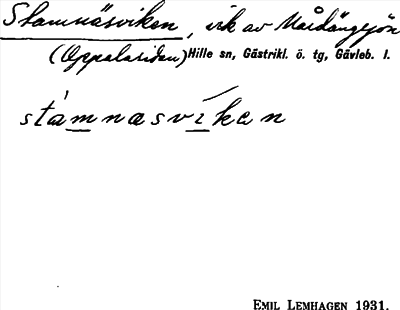 Stamnäsviken, vik av Mårdängsjön
(Oppalasidan) Hille sn, Gästrikl. ö. tg, Gävleb. l.
stámnasvíken
EMIL LEMHAGEN 1931.